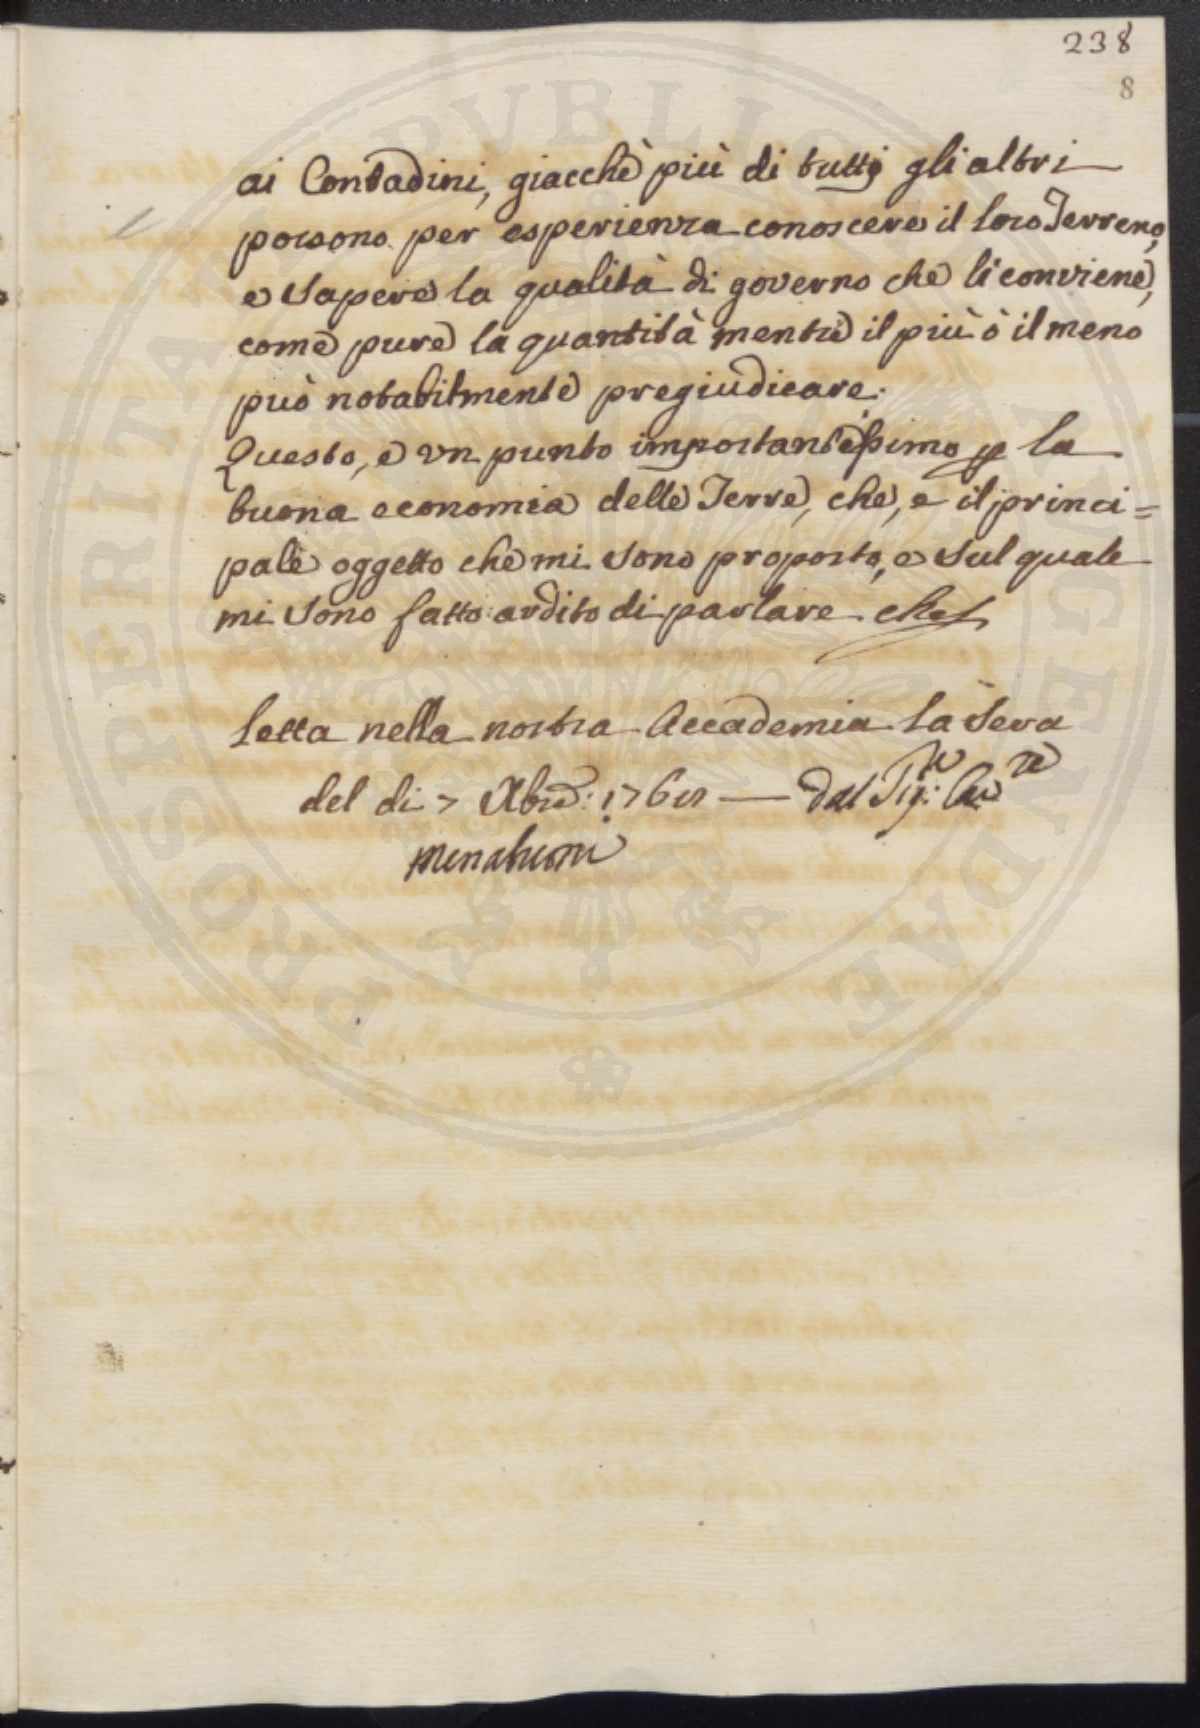 238
8
ai Contadini, giacchè più di tutti gli altri
possono per esperienza conoscere il loro Terreno,
e sapere la qualità di governo che li conviene,
come pure la quantità mentre il più ò il meno
può notabilmente pregiudicare.
Questo, e un punto importantissimo p la
buona economia delle Terre, che, e il princi=
pale oggetto che mi sono proposto, e sul quale
mi sono fatto ardito di parlare
Letta nella nostra Accademia la sera
del di 7 Xbre: 176 — Dal Sig:
PROSPERITATI PUBLICAE AUGENDAE